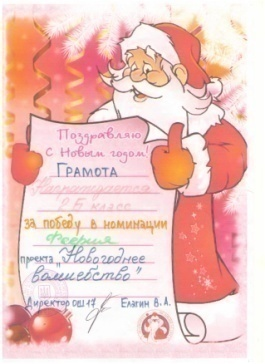 Поздравляю
с Новым годом!
ГРАМОТА
Награждается
2 Б класс
за победу в номинации
Феерия
проекта „Новогоднее
волшебство”
Директор ОШ 17 Елагин В. А.